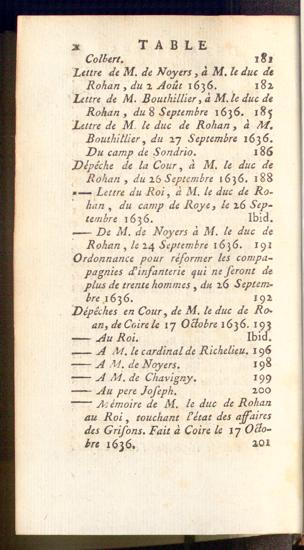 x TABLE
Colbert. 181
Lettre de M. de Noyers, à M. le duc de
Rohan, du 2 Août 1636. 182
Lettre de M. Bouthillier, à M. le duc de
Rohan, du 8 Septembre 1636. 185
Lettre de M. le duc de Rohan, à M.
Bouthillier, du 27 Septembre 1636.
Du camp de Sondrio. 186
Dépêche de la Cour, à M. le duc de
Rohan, du 26 Septembre 1636. 188
— Lettre du Roi, à M. le duc de Ro-
han, du camp de Roye, le 26 Sep-
tembre 1636. Ibid.
— De M. de Noyers à M. le duc de
Rohan, le 24 Septembre 1636. 191
Ordonnance pour réformer les compa-
pagnies d'infanterie qui ne seront de
plus de trente hommes, du 26 Septem-
bre 1636. 192
Dépêches en Cour, de M. le duc de Ro-
an, de Coire le 17 Octobre 1636. 193
— Au Roi. Ibid.
— A M. le cardinal de Richelieu. 196
— A M. de Noyers. 198
— A M. de Chavigny. 199
— Au pere Joseph. 200
— Mémoire de M. le duc de Rohan
au Roi, touchant l'état des affaires
des Grisons. Fait à Coire le 17 Octo-
bre 1636. 201